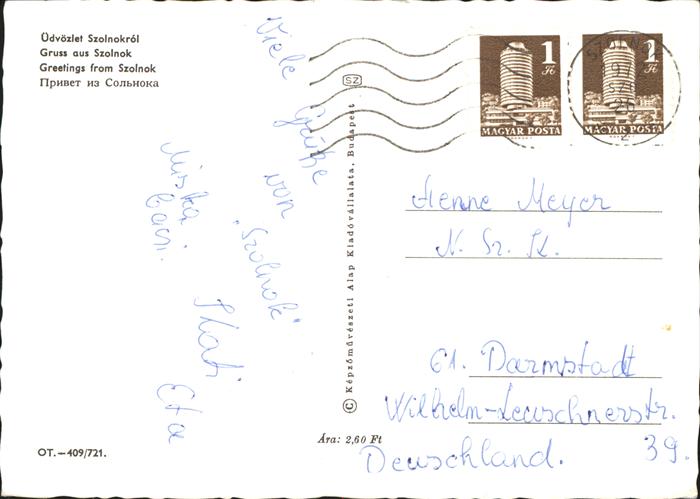 Üdvözlet Szolnokról
Gruss aus Szolnok
Greetings from Szolnok
Привет из Сольнока
Viele
Grüße
von
"Szolnok"
Miska
bácsi.
Kati
Eta
SZ
1
Ft
MAGYAR POSTA
1
Ft
MAGYAR POSTA
© Képzőművészeti Alap Kiadóvállalata, Budapest
Henne Meyer
N. Sz. K.
61. Darmstadt
Wilhelm-Leuschnerstr.
39.
Deuschland.
Ára: 2,60 Ft
OT.—409/721.